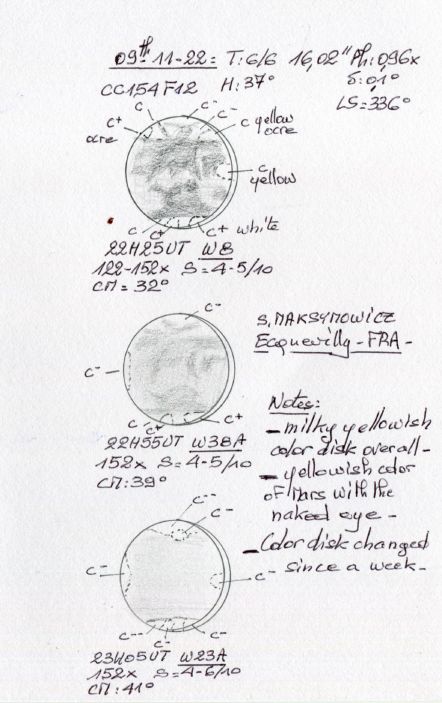 09th-11-22: T:6/6 16,02" Ph:0,96x
CC154F12 H:37° δ:0,1°
LS=336°
c
c-
c-
c+
ocre
c yellow
ocre
c
yellow
c
c+
c+ white
22H25UT W8
122-152x S=4-5/10
CM=32°
c-
S.MAKSYMOWICZ
Ecquevilly-FRA-
c-
c
c+
c+
22H55UT W38A
152x S=4-5/10
CM:39°
Notes:
- milky yellowish
color disk overall-
- yellowish color
of Mars with the
naked eye-
- Color disk changed
since a week-
c--
c-
c-
c-
c--
c-
c-
23H05UT W23A
152x S=4-6/10
CM:41°